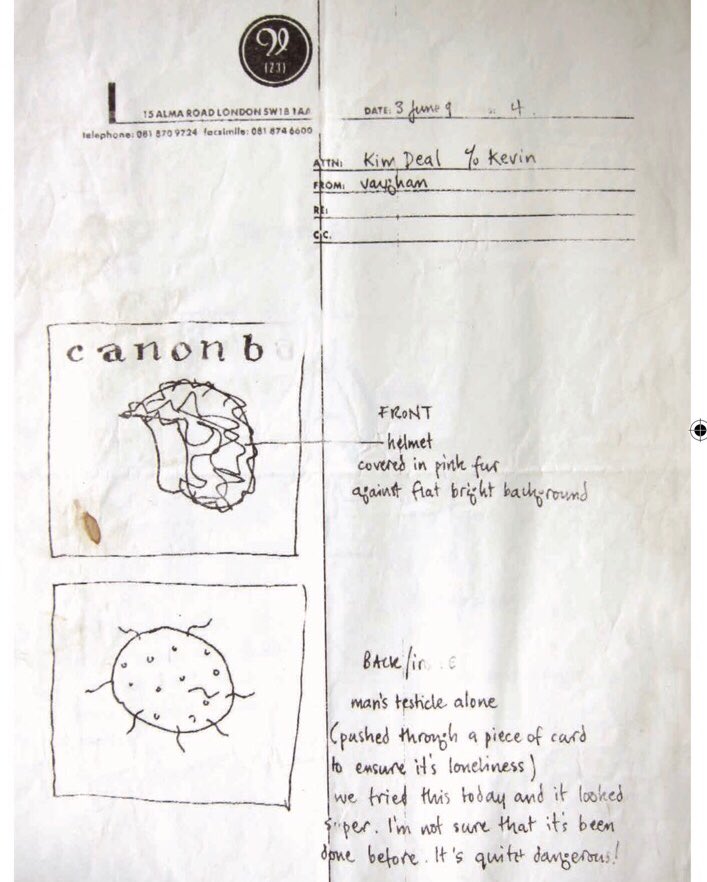 v23
(23)
15 ALMA ROAD LONDON SW18 1AA
telephone: 081 870 9724 facsimile: 081 874 6600
DATE: 3 June 9 4.
ATTN: Kim Deal c/o Kevin
FROM: vaughan
RE:
C.C.
canonba
FRONT
helmet
covered in pink fur
against flat bright background
BACK/
man's testicle alone
(pushed through a piece of card
to ensure it's loneliness)
we tried this today and it looked
super. I'm not sure that it's been
done before. It's quite dangerous!